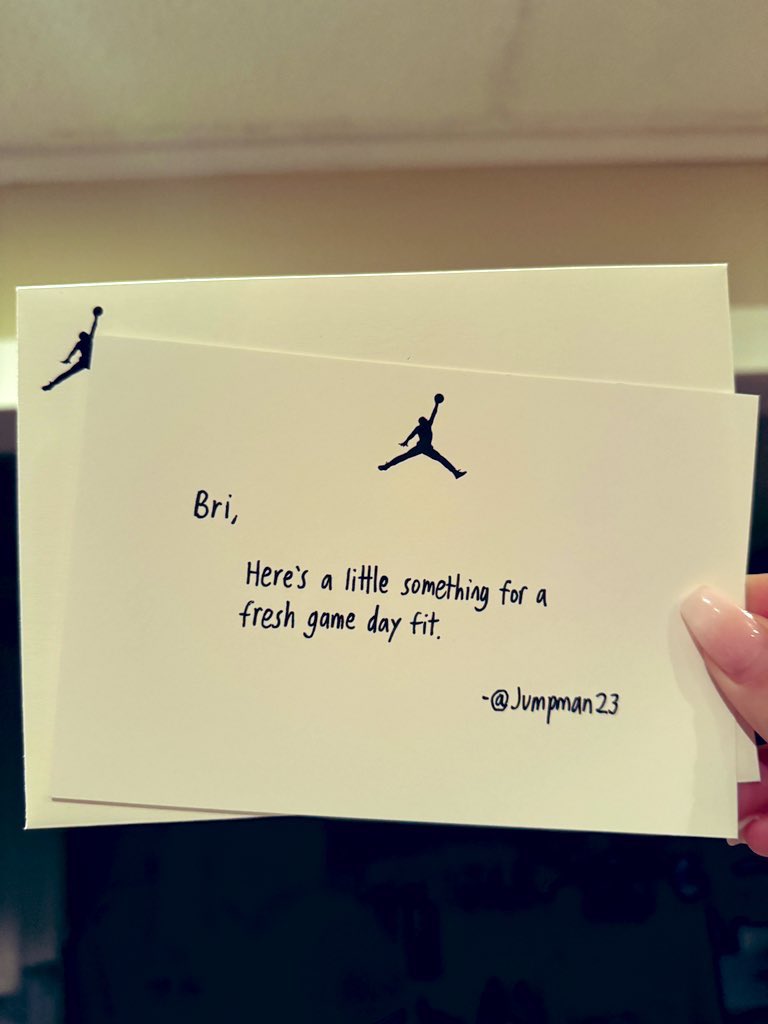 Bri,
Here's a little something for a
fresh game day fit.
-@Jumpman23